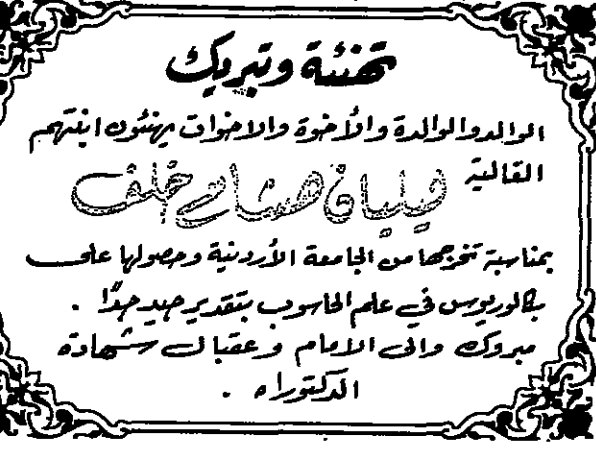 تهنئة وتبريك
الوالد والوالدة والأخوة والاخوات يهنئون ابنتهم
الغالية
فيليان هشام خلف
بمناسبة تخرجها من الجامعة الأردنية وحصولها على
بكالوريوس في علم الحاسوب بتقدير جيد جدًا .
مبروك والى الامام وعقبال شهادة
الدكتوراه .